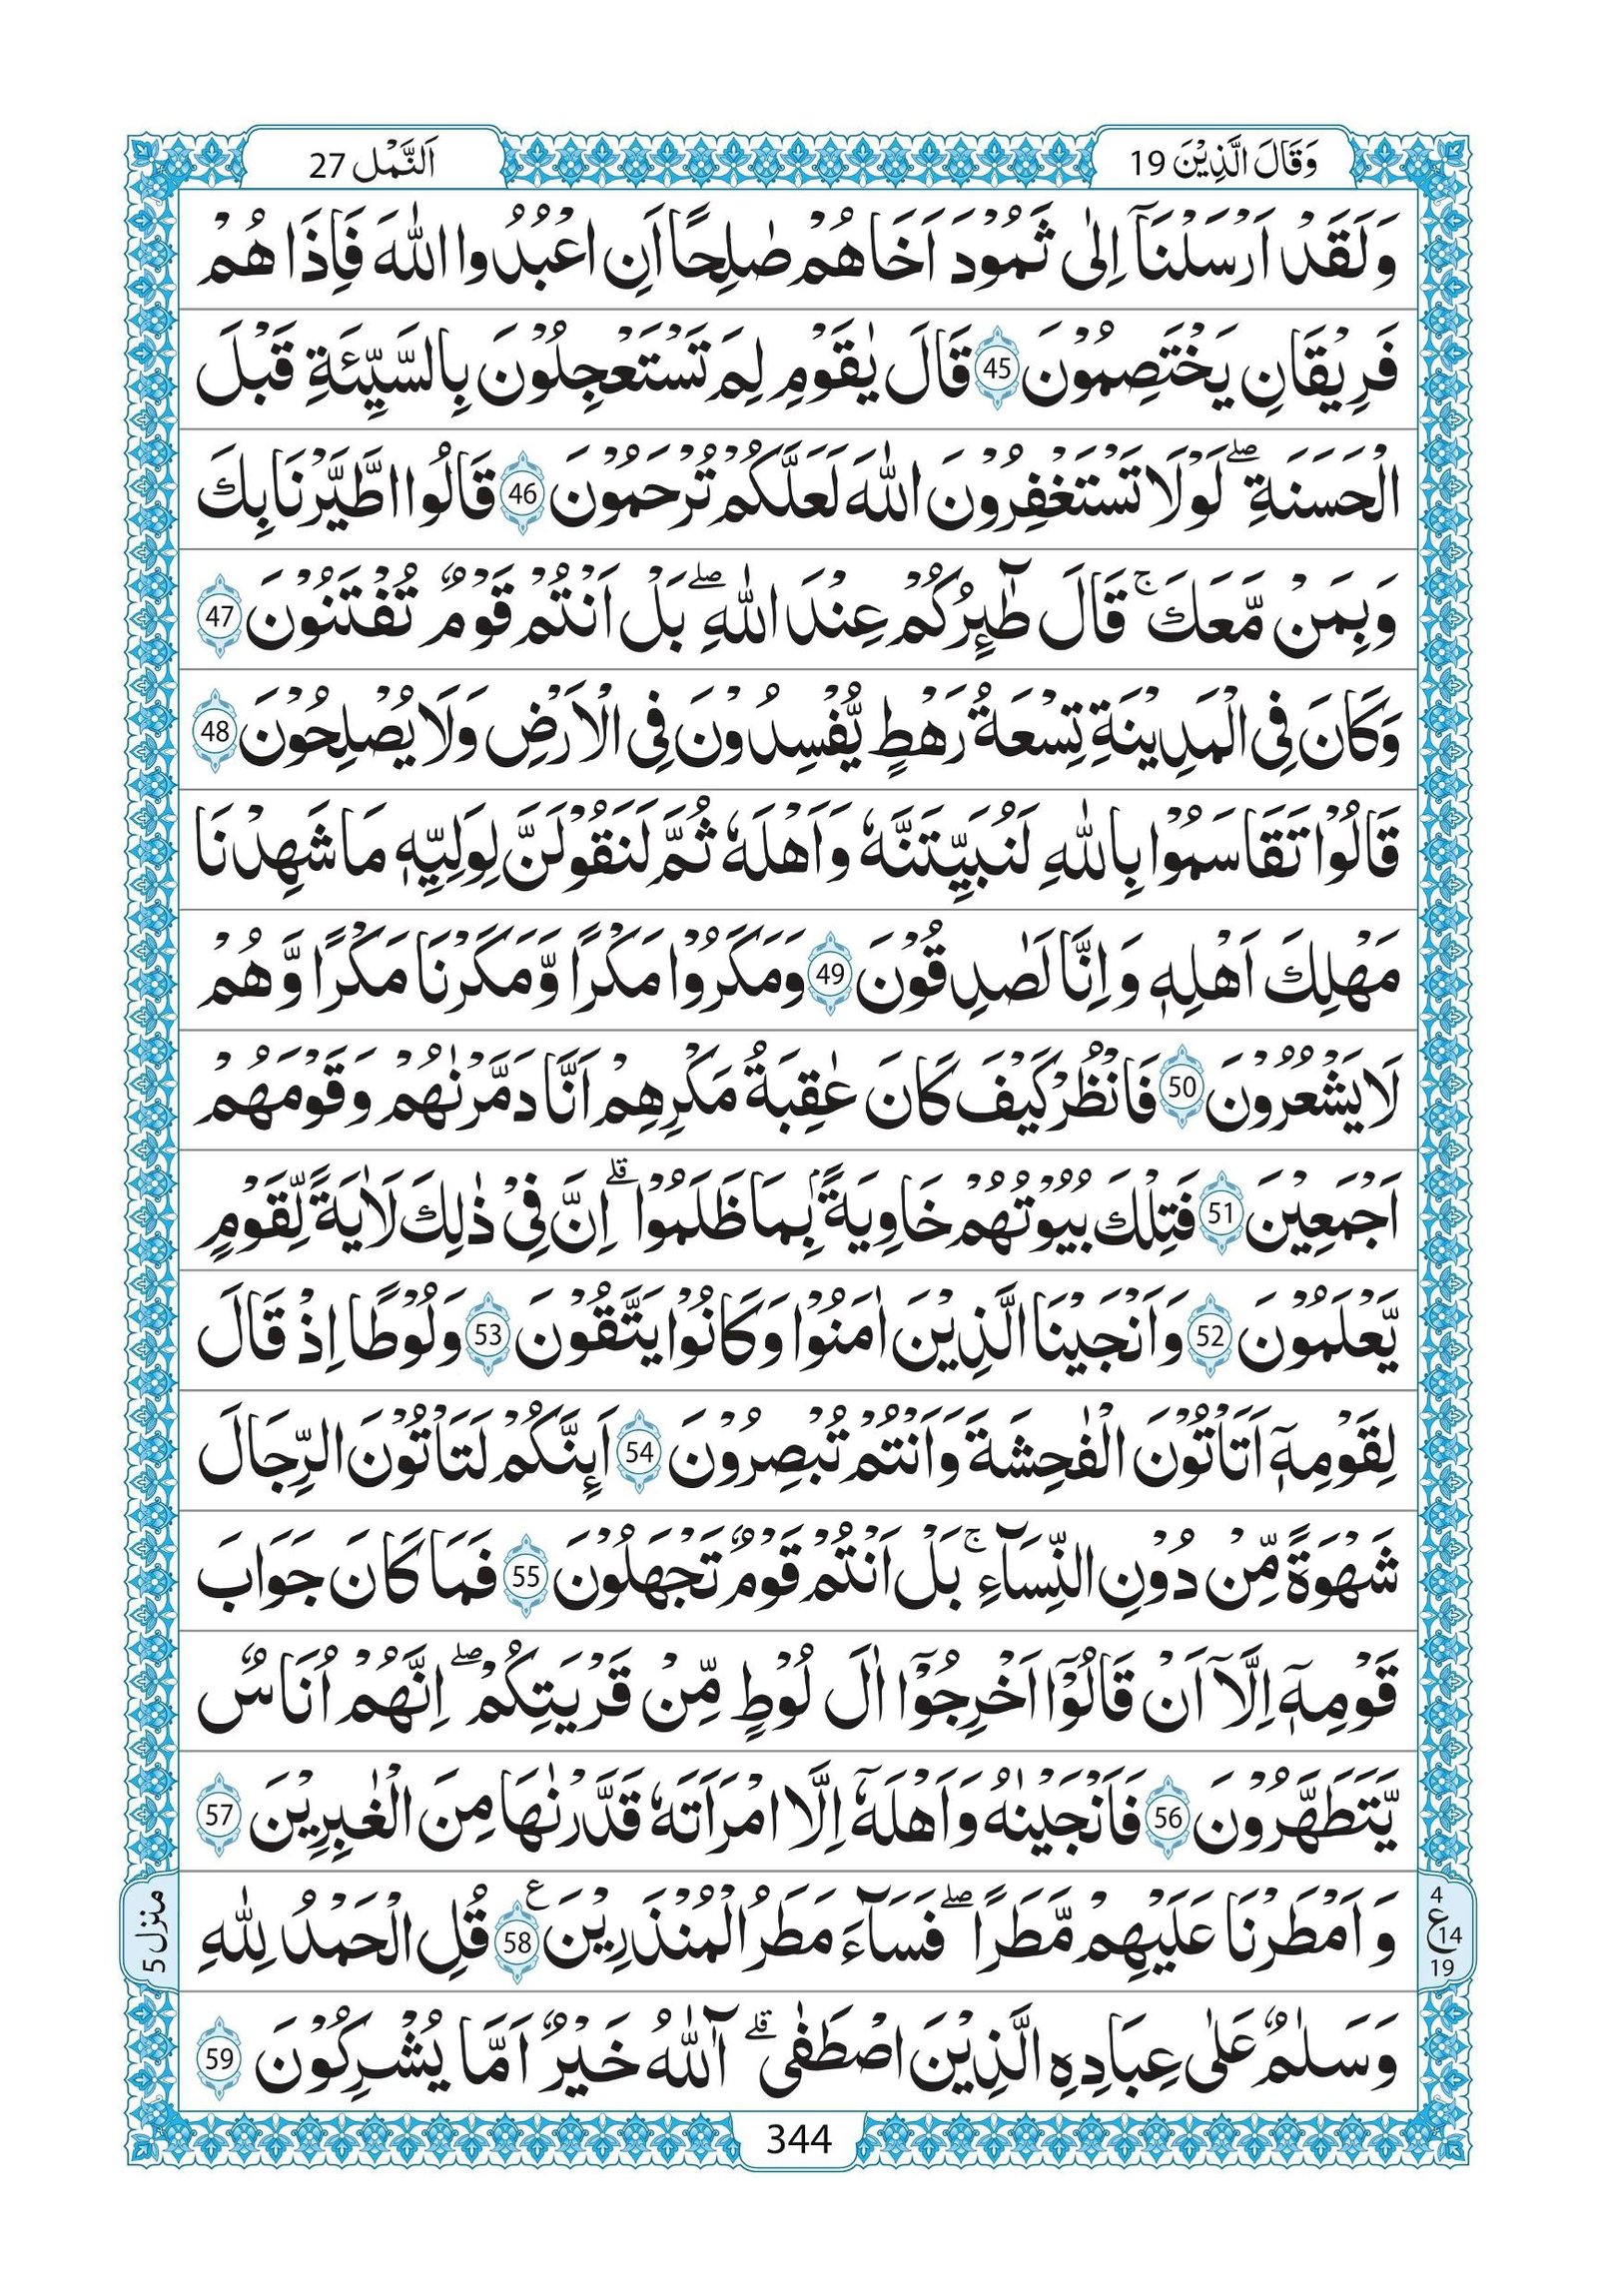 وَقَالَ الَّذِيْنَ 19
اَلنَّمْل 27
وَلَقَدْ اَرْسَلْنَاۤ اِلٰى ثَمُوْدَ اَخَاهُمْ صٰلِحًا اَنِ اعْبُدُوا اللّٰهَ فَاِذَا هُمْ
فَرِيْقَانِ يَخْتَصِمُوْنَ 45 قَالَ يٰقَوْمِ لِمَ تَسْتَعْجِلُوْنَ بِالسَّيِّئَةِ قَبْلَ
الْحَسَنَةِ ۖ لَوْلَا تَسْتَغْفِرُوْنَ اللّٰهَ لَعَلَّكُمْ تُرْحَمُوْنَ 46 قَالُوا اطَّيَّرْنَا بِكَ
وَبِمَنْ مَّعَكَ ۚ قَالَ طٰٓىِٕرُكُمْ عِنْدَ اللّٰهِ ۖ بَلْ اَنْتُمْ قَوْمٌ تُفْتَنُوْنَ 47
وَكَانَ فِى الْمَدِيْنَةِ تِسْعَةُ رَهْطٍ يُّفْسِدُوْنَ فِى الْاَرْضِ وَلَا يُصْلِحُوْنَ 48
قَالُوْا تَقَاسَمُوْا بِاللّٰهِ لَنُبَيِّتَنَّهٗ وَاَهْلَهٗ ثُمَّ لَنَقُوْلَنَّ لِوَلِيِّهٖ مَا شَهِدْنَا
مَهْلِكَ اَهْلِهٖ وَاِنَّا لَصٰدِقُوْنَ 49 وَمَكَرُوْا مَكْرًا وَّمَكَرْنَا مَكْرًا وَّهُمْ
لَا يَشْعُرُوْنَ 50 فَانْظُرْ كَيْفَ كَانَ عٰقِبَةُ مَكْرِهِمْ اَنَّا دَمَّرْنٰهُمْ وَقَوْمَهُمْ
اَجْمَعِيْنَ 51 فَتِلْكَ بُيُوْتُهُمْ خَاوِيَةًۢ بِمَا ظَلَمُوْا ۗ اِنَّ فِيْ ذٰلِكَ لَاٰيَةً لِّقَوْمٍ
يَّعْلَمُوْنَ 52 وَاَنْجَيْنَا الَّذِيْنَ اٰمَنُوْا وَكَانُوْا يَتَّقُوْنَ 53 وَلُوْطًا اِذْ قَالَ
لِقَوْمِهٖۤ اَتَاْتُوْنَ الْفٰحِشَةَ وَاَنْتُمْ تُبْصِرُوْنَ 54 اَىِٕنَّكُمْ لَتَاْتُوْنَ الرِّجَالَ
شَهْوَةً مِّنْ دُوْنِ النِّسَآءِ ۚ بَلْ اَنْتُمْ قَوْمٌ تَجْهَلُوْنَ 55 فَمَا كَانَ جَوَابَ
قَوْمِهٖۤ اِلَّاۤ اَنْ قَالُوْۤا اَخْرِجُوْۤا اٰلَ لُوْطٍ مِّنْ قَرْيَتِكُمْ ۖ اِنَّهُمْ اُنَاسٌ
يَّتَطَهَّرُوْنَ 56 فَاَنْجَيْنٰهُ وَاَهْلَهٗۤ اِلَّا امْرَاَتَهٗ قَدَّرْنٰهَا مِنَ الْغٰبِرِيْنَ 57
وَاَمْطَرْنَا عَلَيْهِمْ مَّطَرًا ۖ فَسَآءَ مَطَرُ الْمُنْذَرِيْنَ ع 58 قُلِ الْحَمْدُ لِلّٰهِ
4
ع 14
19
منزل 5
وَسَلٰمٌ عَلٰى عِبَادِهِ الَّذِيْنَ اصْطَفٰى ۗ آٰللّٰهُ خَيْرٌ اَمَّا يُشْرِكُوْنَ 59
344